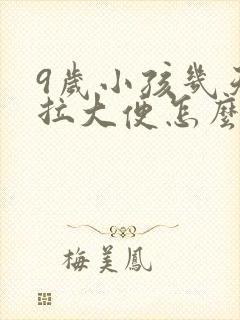 9歲小孩幾天
拉大便怎麼
梅美鳳